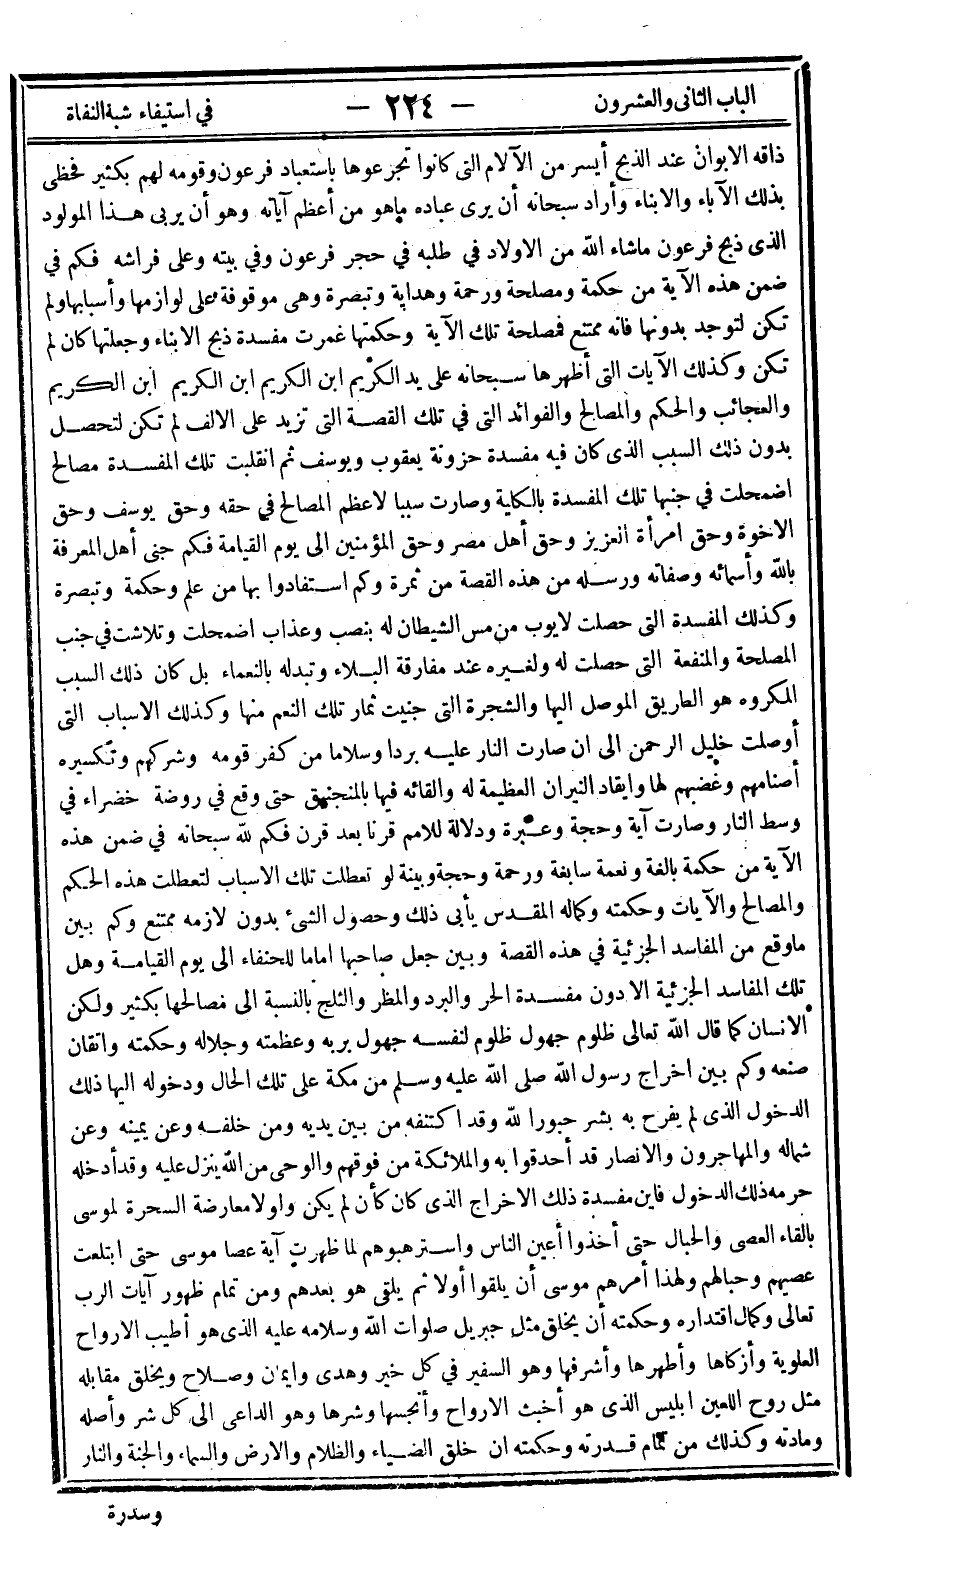 الباب الثانى والعشرون — ٢٢٤ — في استيفاء شبة النفاة
ذاقه الابوان عند الذبح أيسر من الآلام التى كانوا تجزعوها باستعباد فرعون وقومه لهم بكثير فحظى
بذلك الآباء والابناء وأراد سبحانه أن يرى عباده ماهو من أعظم آياته وهو أن يربى هذا المولود
الذى ذبح فرعون ماشاء الله من الاولاد في طلبه في حجر فرعون وفي بيته وعلى فراشه فكم في
ضمن هذه الآية من حكمة ومصلحة ورحمة وهداية وتبصرة وهى موقوفة على لوازمها وأسبابها ولم
تكن لتوجد بدونها فانه ممتنع فمصلحة تلك الآية وحكمتها غمرت مفسدة ذبح الابناء وجعلتها كان لم
تكن وكذلك الآيات التى أظهرها سبحانه على يد الكريم ابن الكريم ابن الكريم ابن الكريم
والعجائب والحكم والمصالح والفوائد التى في تلك القصة التى تزيد على الالف لم تكن لتحصل
بدون ذلك السبب الذى كان فيه مفسدة حزونة يعقوب ويوسف ثم انقلبت تلك المفسدة مصالح
اضمحلت في جنبها تلك المفسدة بالكلية وصارت سببا لاعظم المصالح في حقه وحق يوسف وحق
الاخوة وحق امرأة العزيز وحق أهل مصر وحق المؤمنين الى يوم القيامة فكم جنى أهل المعرفة
بالله وأسمائه وصفاته ورسله من هذه القصة من ثمرة وكم استفادوا بها من علم وحكمة وتبصرة
وكذلك المفسدة التى حصلت لايوب من مس الشيطان له بنصب وعذاب اضمحلت وتلاشت في جنب
المصلحة والمنفعة التى حصلت له ولغيره عند مفارقة البلاء وتبدله بالنعماء بل كان ذلك السبب
المكروه هو الطريق الموصل اليها والشجرة التى جنيت ثمار تلك النعم منها وكذلك الاسباب التى
أوصلت خليل الرحمن الى ان صارت النار عليه بردا وسلاما من كفر قومه وشركهم وتكسيره
أصنامهم وغضبهم لها وايقاد النيران العظيمة له والقائه فيها بالمنجنيق حتى وقع في روضة خضراء في
وسط النار وصارت آية وحجة وعبرة ودلالة للامم قرنا بعد قرن فكم لله سبحانه في ضمن هذه
الآية من حكمة بالغة ونعمة سابغة ورحمة وحجة وبينة لو تعطلت تلك الاسباب لتعطلت هذه الحكم
والمصالح والآيات وحكمته وكماله المقدس يأبى ذلك وحصول الشئ بدون لازمه ممتنع وكم بين
ماوقع من المفاسد الجزئية في هذه القصة وبين جعل صاحبها اماما للحنفاء الى يوم القيامة وهل
تلك المفاسد الجزئية الا دون مفسدة الحر والبرد والمطر والثلج بالنسبة الى مصالحها بكثير ولكن
الانسان كما قال الله تعالى ظلوم جهول ظلوم لنفسه جهول بربه وعظمته وجلاله وحكمته واتقان
صنعه وكم بين اخراج رسول الله صلى الله عليه وسلم من مكة على تلك الحال ودخوله اليها ذلك
الدخول الذى لم يفرح به بشر حبورا لله وقد اكتنفه من بين يديه ومن خلفه وعن يمينه وعن
شماله والمهاجرون والانصار قد أحدقوا به والملائكة من فوقهم والوحى من الله ينزل عليه وقد أدخله
حرمه ذلك الدخول فاين مفسدة ذلك الاخراج الذى كان كأن لم يكن واولا معارضة السحرة لموسى
بالقاء العصى والحبال حتى أخذوا أعين الناس واسترهبوهم لما ظهرت آية عصا موسى حتى ابتلعت
عصيهم وحبالهم ولهذا أمرهم موسى أن يلقوا أولا ثم يلقى هو بعدهم ومن تمام ظهور آيات الرب
تعالى وكمال اقتداره وحكمته أن يخلق مثل جبريل صلوات الله وسلامه عليه الذى هو أطيب الارواح
العلوية وأزكاها وأطهرها وأشرفها وهو السفير في كل خير وهدى وايمان وصلاح ويخلق مقابله
مثل روح اللعين ابليس الذى هو أخبث الارواح وأنجسها وشرها وهو الداعى الى كل شر وأصله
ومادته وكذلك من تمام قدرته وحكمته ان خلق الضياء والظلام والارض والسماء والجنة والنار
وسدرة